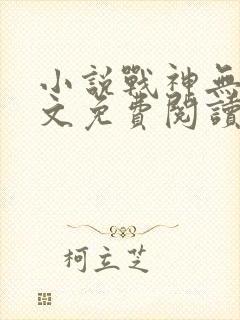 小說戰神無
文免費閱讀
柯立芝